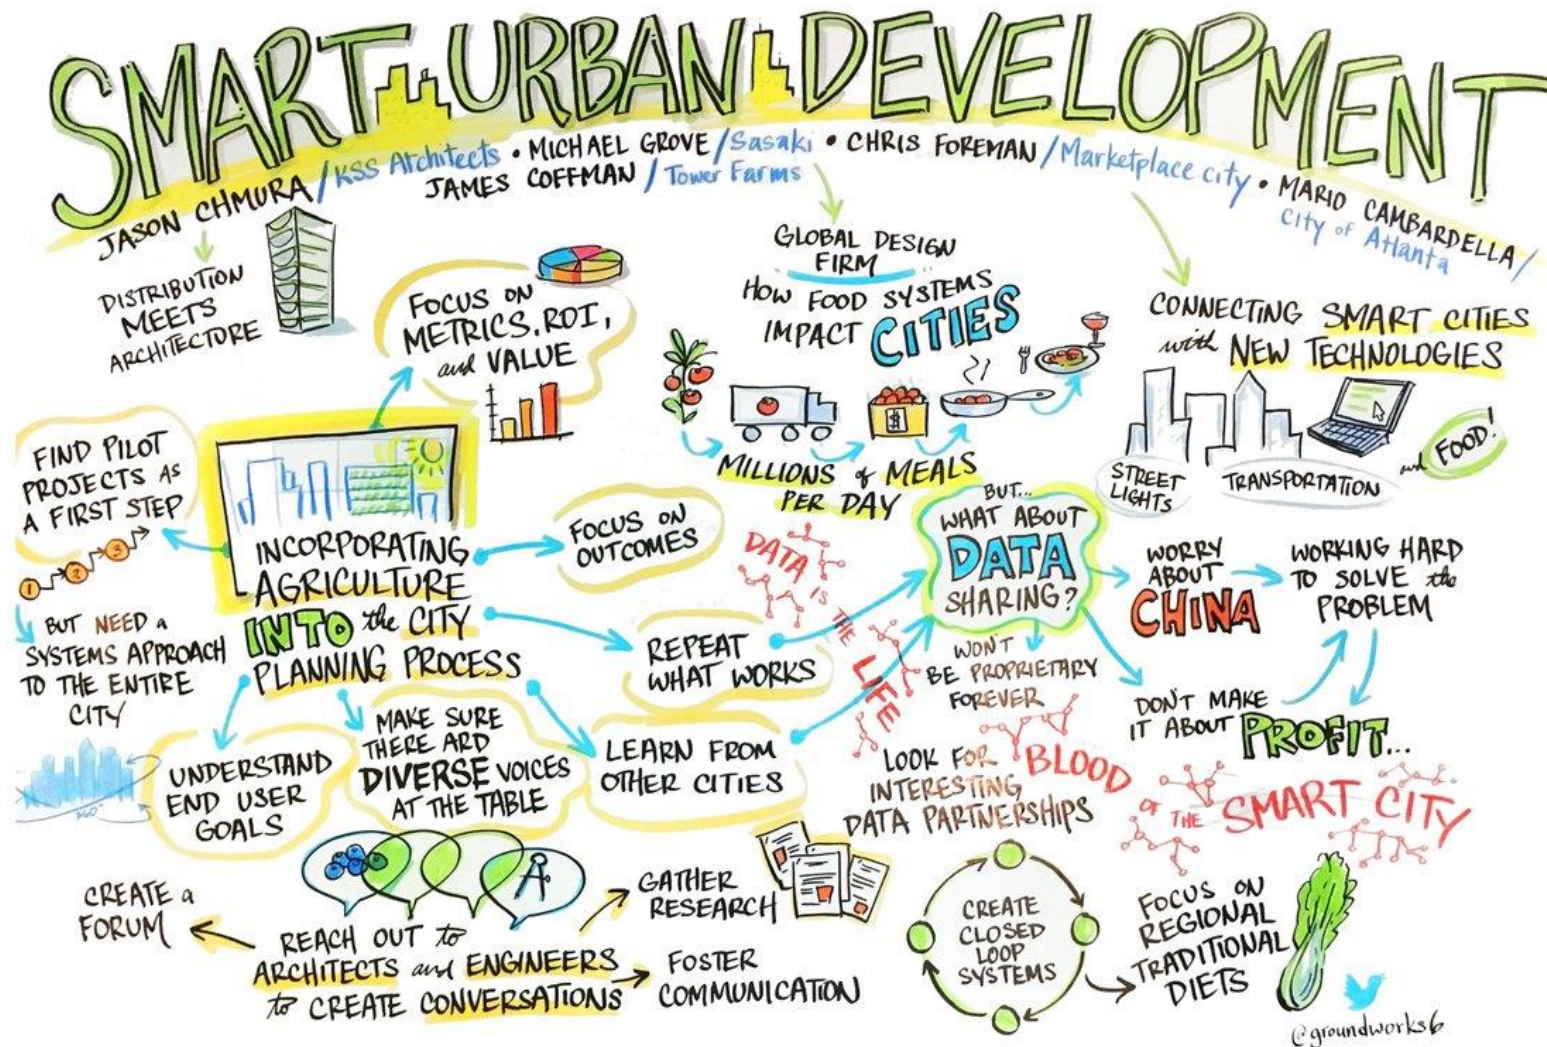 SMART URBAN DEVELOPMENT
JASON CHMURA / KSS Architects • MICHAEL GROVE / Sasaki • CHRIS FOREMAN / Marketplace city • MARIO CAMBARDELLA /
JAMES COFFMAN / Tower Farms
City of Atlanta
DISTRIBUTION
MEETS
ARCHITECTURE
FOCUS ON
METRICS, ROI,
and VALUE
GLOBAL DESIGN
FIRM
HOW FOOD SYSTEMS
IMPACT CITIES
$
MILLIONS of MEALS
PER DAY
CONNECTING SMART CITIES
with NEW TECHNOLOGIES
STREET
LIGHTS
TRANSPORTATION
and FOOD!
FIND PILOT
PROJECTS AS
A FIRST STEP
1 2 3
BUT NEED a
SYSTEMS APPROACH
TO THE ENTIRE
CITY
360°
INCORPORATING
AGRICULTURE
INTO the CITY
PLANNING PROCESS
FOCUS ON
OUTCOMES
REPEAT
WHAT WORKS
LEARN FROM
OTHER CITIES
MAKE SURE
THERE ARD
DIVERSE VOICES
AT THE TABLE
UNDERSTAND
END USER
GOALS
BUT...
WHAT ABOUT
DATA
SHARING?
WORRY
ABOUT
CHINA
WORKING HARD
TO SOLVE the
PROBLEM
WON'T
BE PROPRIETARY
FOREVER
DON'T MAKE
IT ABOUT PROFIT...
DATA IS THE LIFE
BLOOD OF THE SMART CITY
LOOK FOR
INTERESTING
DATA PARTNERSHIPS
CREATE a
FORUM
REACH OUT to
ARCHITECTS and ENGINEERS
to CREATE CONVERSATIONS
GATHER
RESEARCH
FOSTER
COMMUNICATION
CREATE
CLOSED
LOOP
SYSTEMS
FOCUS ON
REGIONAL
TRADITIONAL
DIETS
@groundworks6